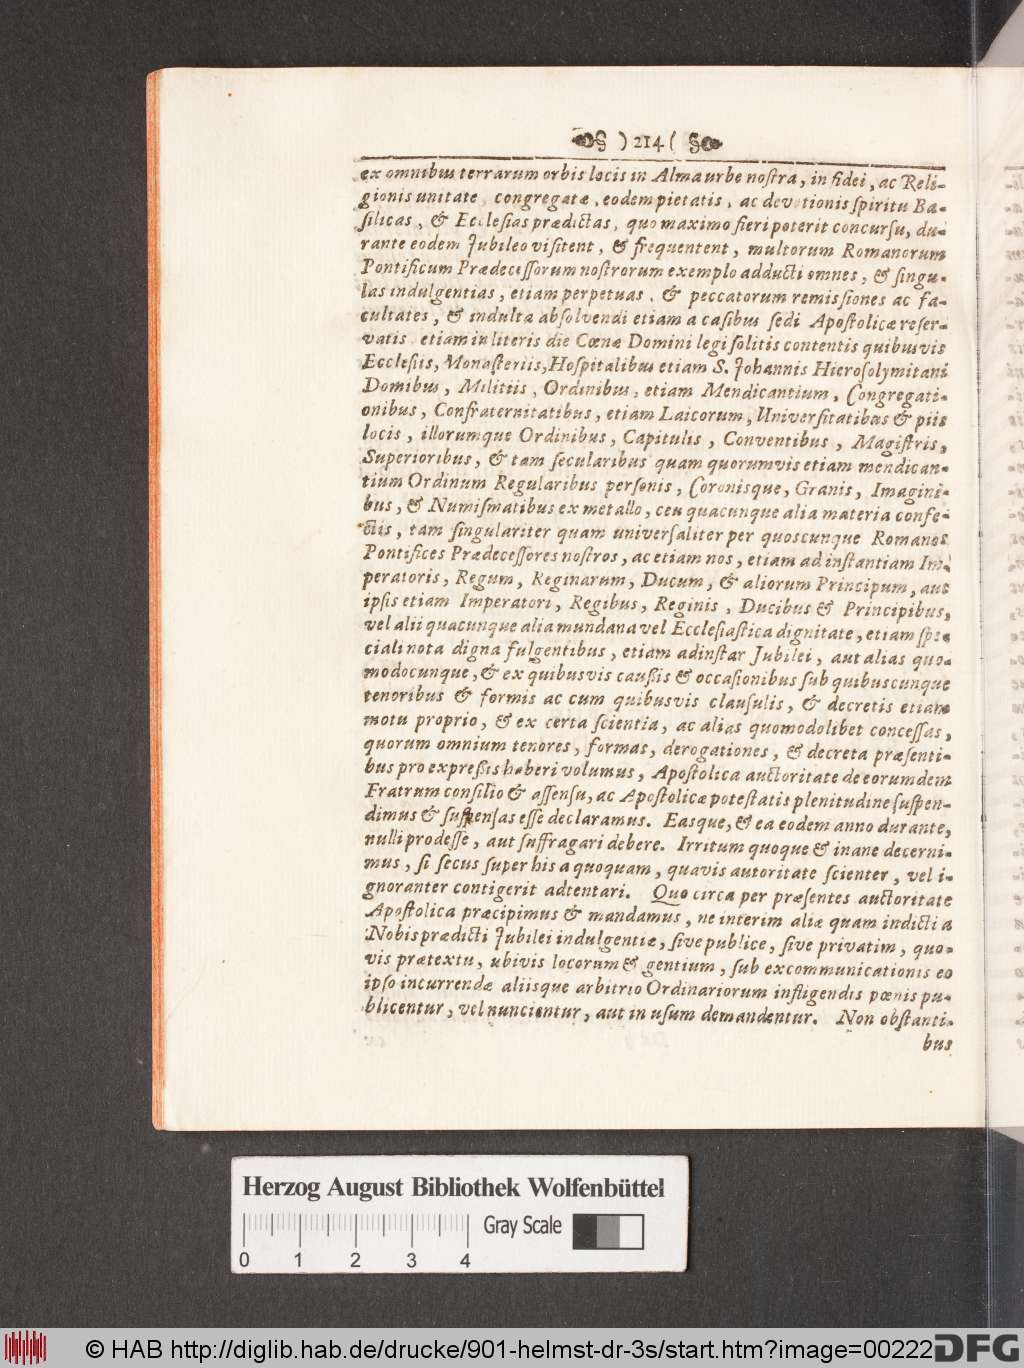 § ) 214 ( §
ex omnibus terrarum orbis locis in Alma urbe nostra, in fidei, ac Reli-
gionis unitate congregatæ, eodem pietatis, ac devotionis spiritu Ba-
silicas, & Ecclesias prædictas, quo maximo fieri poterit concursu, du-
rante eodem Jubileo visitent, & frequentent, multorum Romanorum
Pontificum Prædecessorum nostrorum exemplo adducti omnes, & singu-
las indulgentias, etiam perpetuas, & peccatorum remissiones ac fa-
cultates, & indulta absolvendi etiam a casibus sedi Apostolicæ reser-
vatis etiam in literis die Cœnæ Domini legi solitis contentis quibusvis
Ecclesiis, Monasteriis, Hospitalibus etiam S. Johannis Hierosolymitani
Domibus, Militiis, Ordinibus, etiam Mendicantium, Congregati-
onibus, Confraternitatibus, etiam Laicorum, Universitatibus & piis
locis, illorumque Ordinibus, Capitulis, Conventibus, Magistris,
Superioribus, & tam secularibus quam quorumvis etiam mendican-
tium Ordinum Regularibus personis, Coronisque, Granis, Imagini-
bus, & Numismatibus ex metallo, ceu quacunque alia materia confe-
ctis, tam singulariter quam universaliter per quoscunque Romanos
Pontifices Prædecessores nostros, ac etiam nos, etiam ad instantiam Im-
peratoris, Regum, Reginarum, Ducum, & aliorum Principum, aut
ipsis etiam Imperatori, Regibus, Reginis, Ducibus & Principibus,
vel alii quacunque alia mundana vel Ecclesiastica dignitate, etiam spe-
ciali nota digna fulgentibus, etiam ad instar Jubilei, aut alias quo-
modocunque, & ex quibusvis caußis & occasionibus sub quibuscunque
tenoribus & formis ac cum quibusvis clausulis, & decretis etiam
motu proprio, & ex certa scientia, ac alias quomodolibet concessas,
quorum omnium tenores, formas, derogationes, & decreta præsenti-
bus pro expreßis haberi volumus, Apostolica auctoritate de eorumdem
Fratrum consilio & assensu, ac Apostolicæ potestatis plenitudine suspen-
dimus & suspensas esse declaramus. Easque, & ea eodem anno durante,
nulli prodesse, aut suffragari debere. Irritum quoque & inane decerni-
mus, si secus super his a quoquam, quavis autoritate scienter, vel i-
gnoranter contigerit adtentari. Quo circa per præsentes auctoritate
Apostolica præcipimus & mandamus, ne interim aliæ quam indicti a
Nobis prædicti Jubilei indulgentiæ, sive publice, sive privatim, quo-
vis prætextu, ubivis locorum & gentium, sub excommunicationis eo
ipso incurrendæ aliisque arbitrio Ordinariorum infligendis pœnis pu-
blicentur, vel nuncientur, aut in usum demandentur. Non obstanti-
bus
Herzog August Bibliothek Wolfenbüttel
Gray Scale
0 1 2 3 4
© HAB http://diglib.hab.de/drucke/901-helmst-dr-3s/start.htm?image=00222
DFG